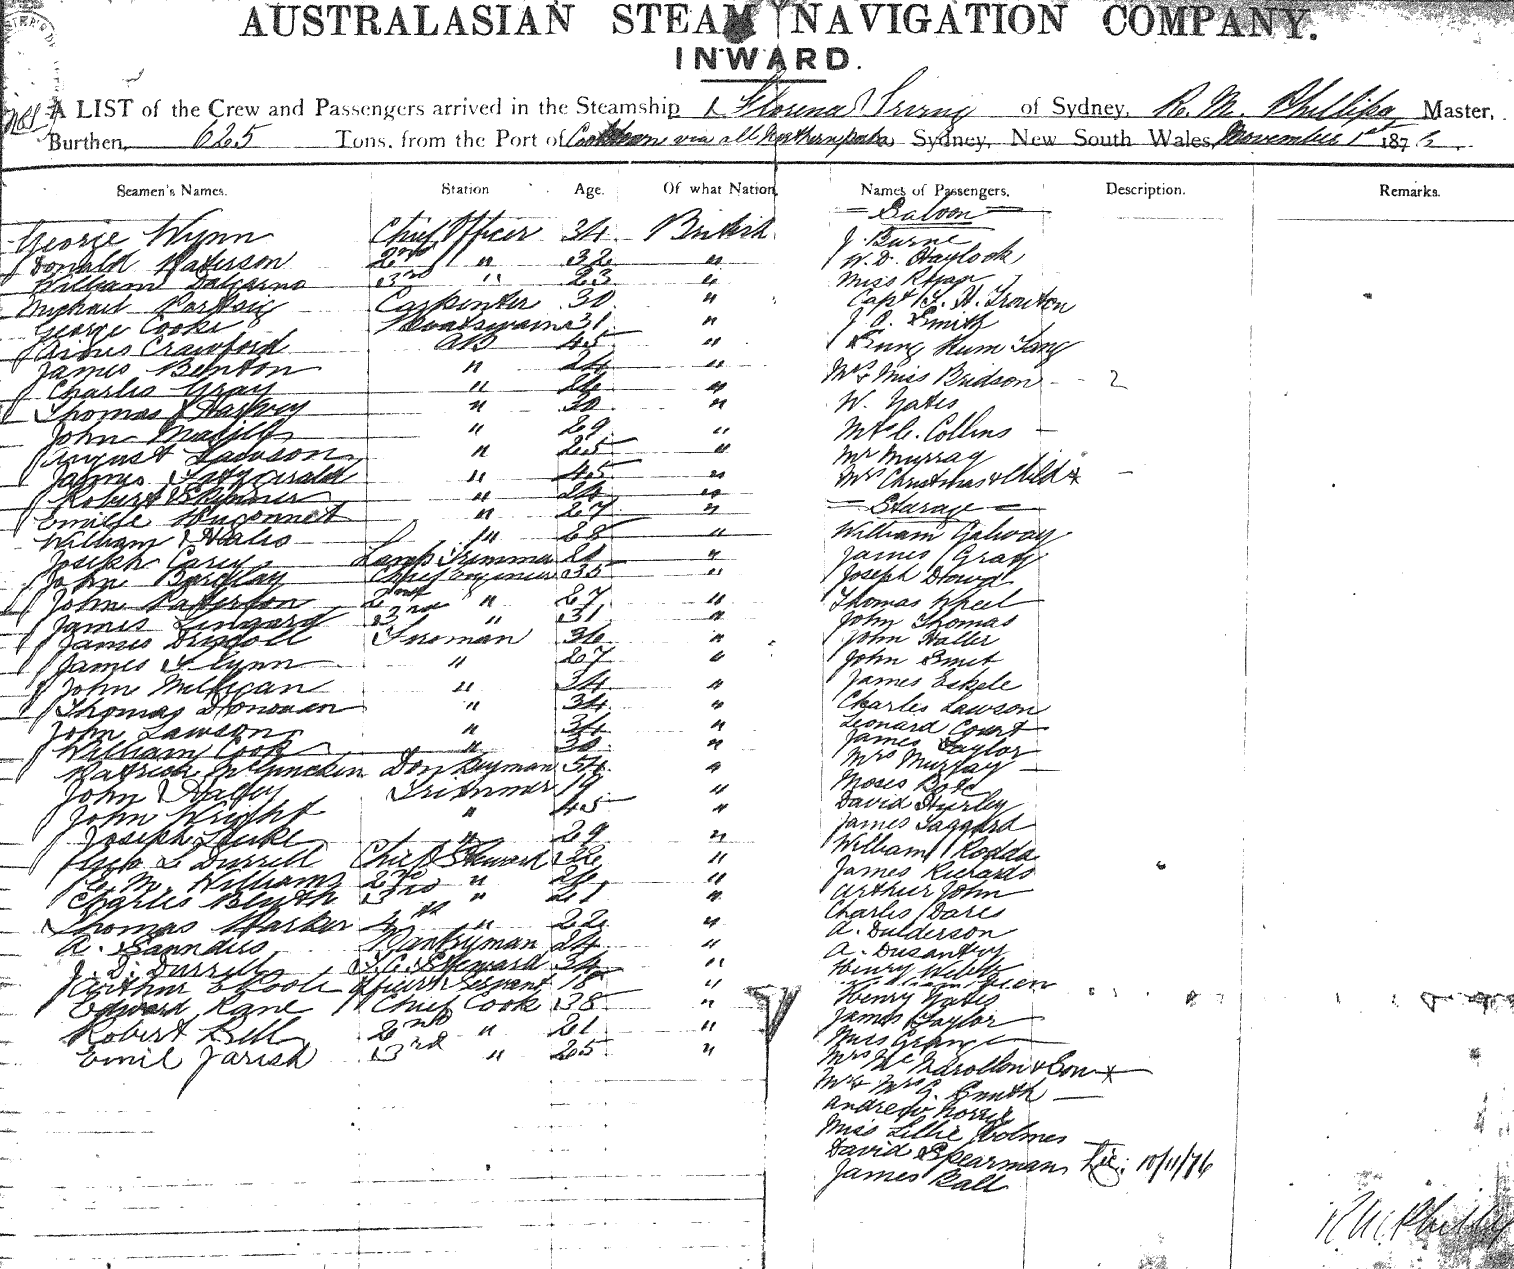 AUSTRALASIAN STEAM NAVIGATION COMPANY.
INWARD.
A LIST of the Crew and Passengers arrived in the Steamship Florence Irving of Sydney, R. M. Phillips Master,
Burthen, 625 Tons, from the Port of Cooktown via all Northern ports Sydney, New South Wales, November 1st 1876
Seamen's Names. Station Age. Of what Nation Names of Passengers. Description. Remarks.
Saloon
George Wynn Chief Officer 34 British J. Burne
Donald Paterson 2nd " 32 " W. D. Haylock
William Dalgarno 3rd " 23 " Miss Ryan
Michael Carpenter 30 " Capt H. A. Trouton
George Cooke Boatswain 31 " J. A. Smith
Crawford AB 45 " Sung Hum Tang
James Benton " 24 " Mr & Miss Bridson 2
Charles Gray " 26 " W. Yates
Thomas Harvey " 30 "
John " 29 " Mr C. Collins
August Lawson " 25 " Mr Murray
James Fitzgerald " 45 " Mrs Christmas & Child
Robert Skinner " 24 "
Emile " 27 " Steerage
William Hales " 28 " William Galway
Joseph Carey Lamp Trimmer 20 " James Gray
John Barclay Chief Engineer 35 " Joseph Dowd
John Paterson 2nd " 27 " Thomas Wheel
James Lingard 3rd " 31 " John Thomas
James Driscoll Fireman 36 " John Haller
James Flynn " 27 " John Smit
John Milligan " 34 " James Eskele
Thomas Donovan " 34 " Charles Lawson
John Lawson " 34 " Leonard Court
William Cook " 30 " James Taylor
Patrick Donkeyman 54 " Mrs Murray
John Trimmer 19 " Moses
John Wright " 45 " David Hurley
Joseph " 29 " James Taggard
Geo L Durrell Chief Steward 32 " William Rodda
C. M. Williams 2nd " 26 " James Richards
Charles Blyth 3rd " 21 " Arthur John
Thomas Harker 4th " 22 " Charles Dares
A. Saunders Pantryman 24 " A. Dulderson
J. D. Durrell F.C. Steward 34 " A. Dusantoy
Arthur Officers Servant 18 " Henry Webb
Edward Kane Chief Cook 38 " Henry Yates
Robert Bell 2nd " 21 " James Taylor
Emil Jarish 3rd " 25 " Miss Grange
Mrs & Son
Mr & Mrs G. Smith
Andrew Norrie
Miss Lillie Holmes
David Spearman 10/11/76
James Rall
R. M. Phillips